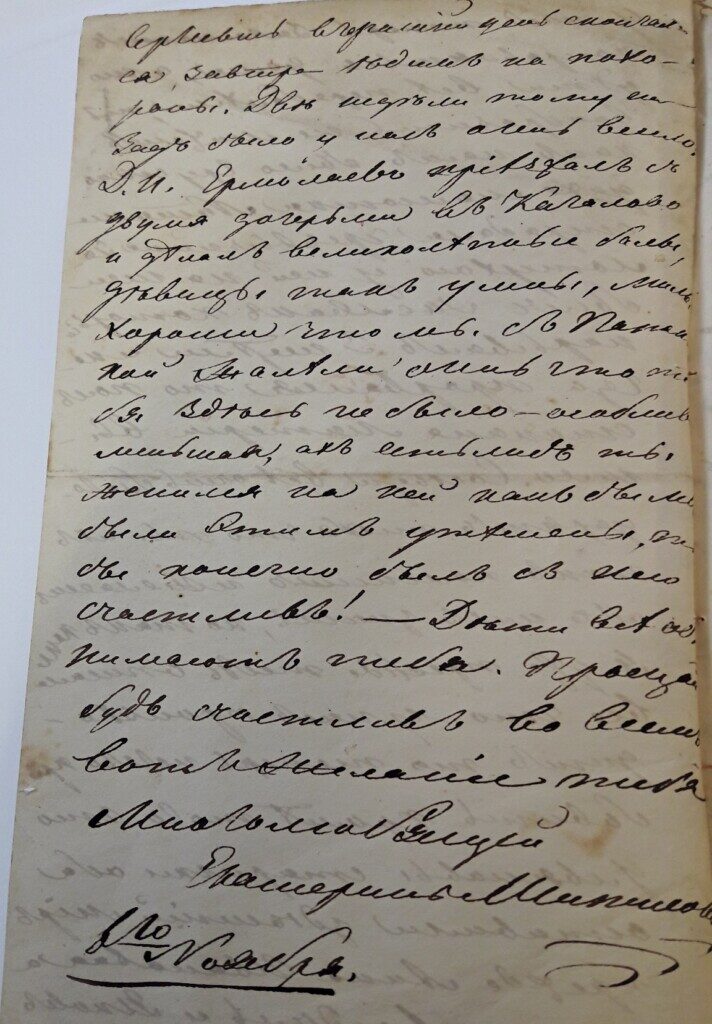 вчерашній день скончал-
ся, завтра ѣдимъ на похо-
роны. Двѣ недѣли тому на-
задъ было у насъ очень весело.
Д. И. Ермолаевъ пріѣзжалъ съ
двумя дочерьми въ Качалово
и дѣлалъ великолѣпные балы,
дѣвицы такъ умны, милы,
хороши
кой жалѣли очень что те
бя здѣсь не было — особлив
меньшая, ахъ естьлибъ ты
женился на ней какъ бы мы
были этимъ утешены, ты
бы конечно былъ съ нею
счастливъ! — Дѣти всѣ об
нимаютъ тебя. Прощай
будь счастливъ во всемъ
вотъ желаніе тебя
Многолюбящей
Екатерины
6го Ноября.